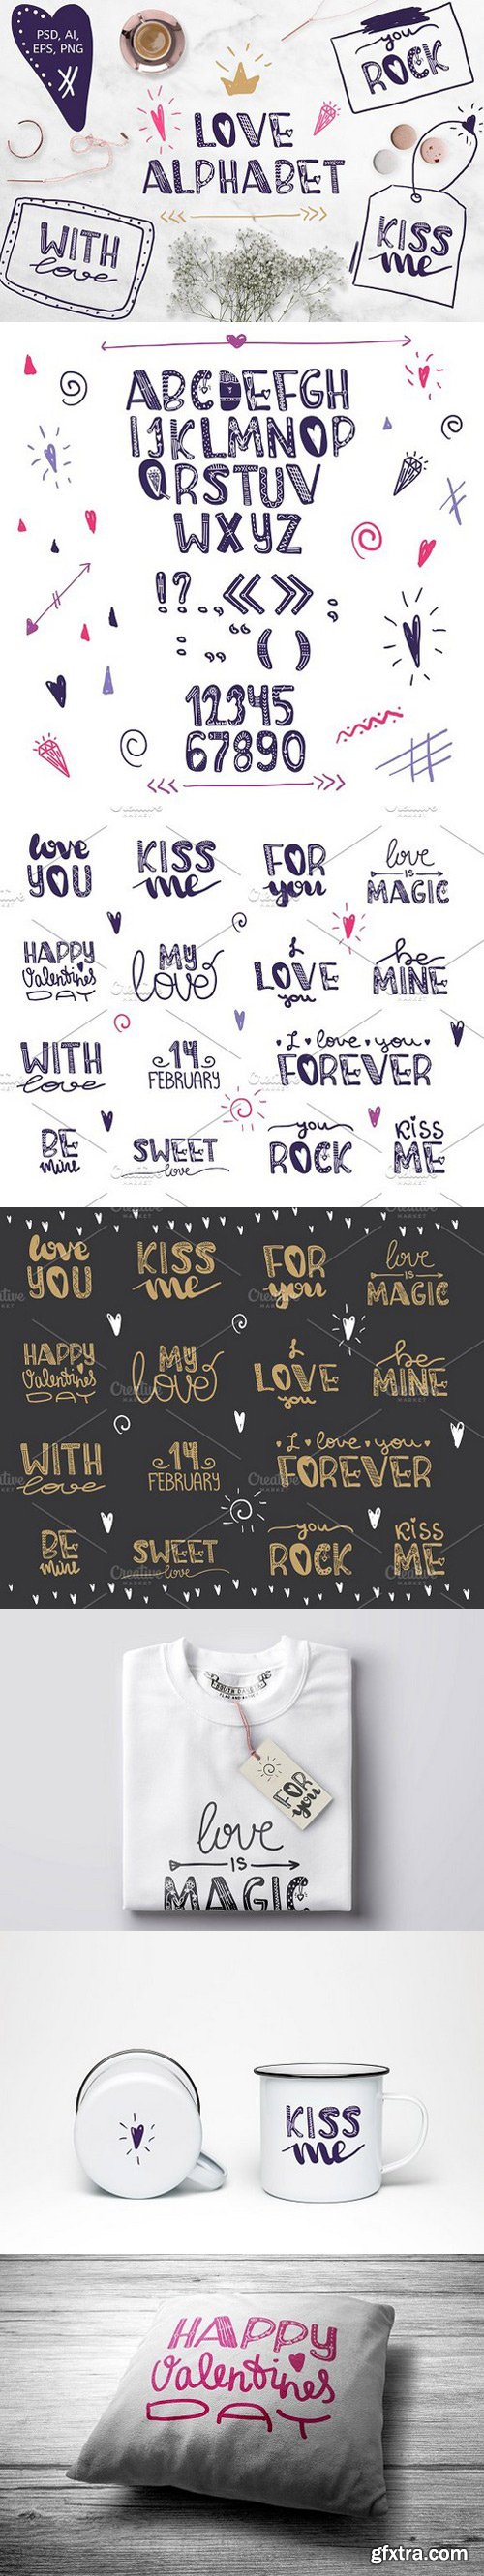 PSD, AI,
EPS, PNG
you
ROCK
LOVE
ALPHABET
WITH
love
KISS
me
ABCDEFGH
IJKLMNOP
QRSTUV
WXYZ
!? . , « » ;
: „ “ ( )
12345
67890
Creative
MARKET
Creative
MARKET
love
YOU
KISS
me
FOR
you
love
IS
MAGIC
HAPPY
Valentines
DAY
MY
love
I
LOVE
you
be
MINE
WITH
love
14
FEBRUARY
I love you
FOREVER
BE
mine
SWEET
love
you
ROCK
KISS
ME
love
YOU
KISS
me
FOR
you
love
IS
MAGIC
HAPPY
Valentines
DAY
MY
love
I
LOVE
you
be
MINE
WITH
love
14
FEBRUARY
I love you
FOREVER
BE
mine
SWEET
love
you
ROCK
KISS
ME
FOR
you
love
IS
MAGIC
KISS
me
HAPPY
Valentines
DAY
gfxtra.com